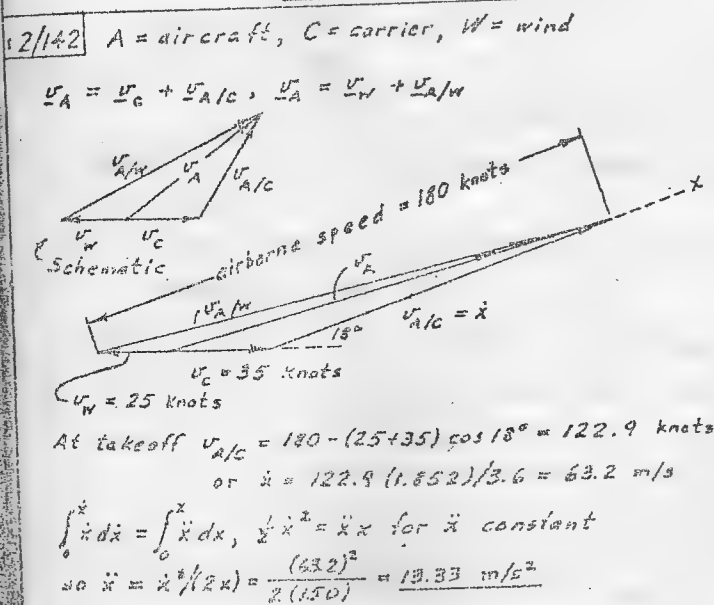 2/142 A = aircraft, C = carrier, W = wind
v_A = v_C + v_A/C, v_A = v_W + v_A/W
v_A/W
v_A
v_A/C
v_W
v_C
Schematic
airborne speed = 180 knots
x
v_A
v_A/W
18°
v_A/C = ẋ
v_C = 35 knots
v_W = 25 knots
At takeoff v_A/C = 180-(25+35) cos 18° = 122.9 knots
or ẋ = 122.9 (1.852)/3.6 = 63.2 m/s
∫₀^ẋ ẋ dẋ = ∫₀^x ẍ dx, ½ ẋ² = ẍx for ẍ constant
so ẍ = ẋ²/(2x) = (63.2)²/2(150) = 13.33 m/s²